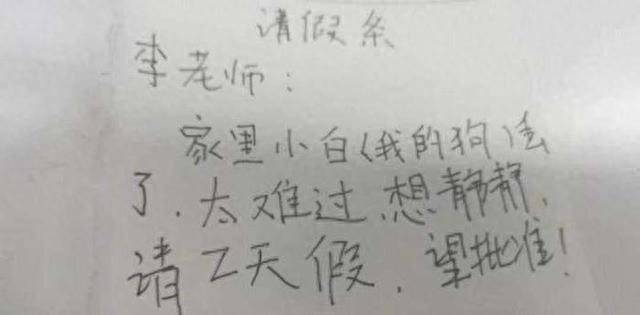 请假条
李老师:
家里小白(我的狗)丢
了,太难过,想静静,
请2天假,望批准!